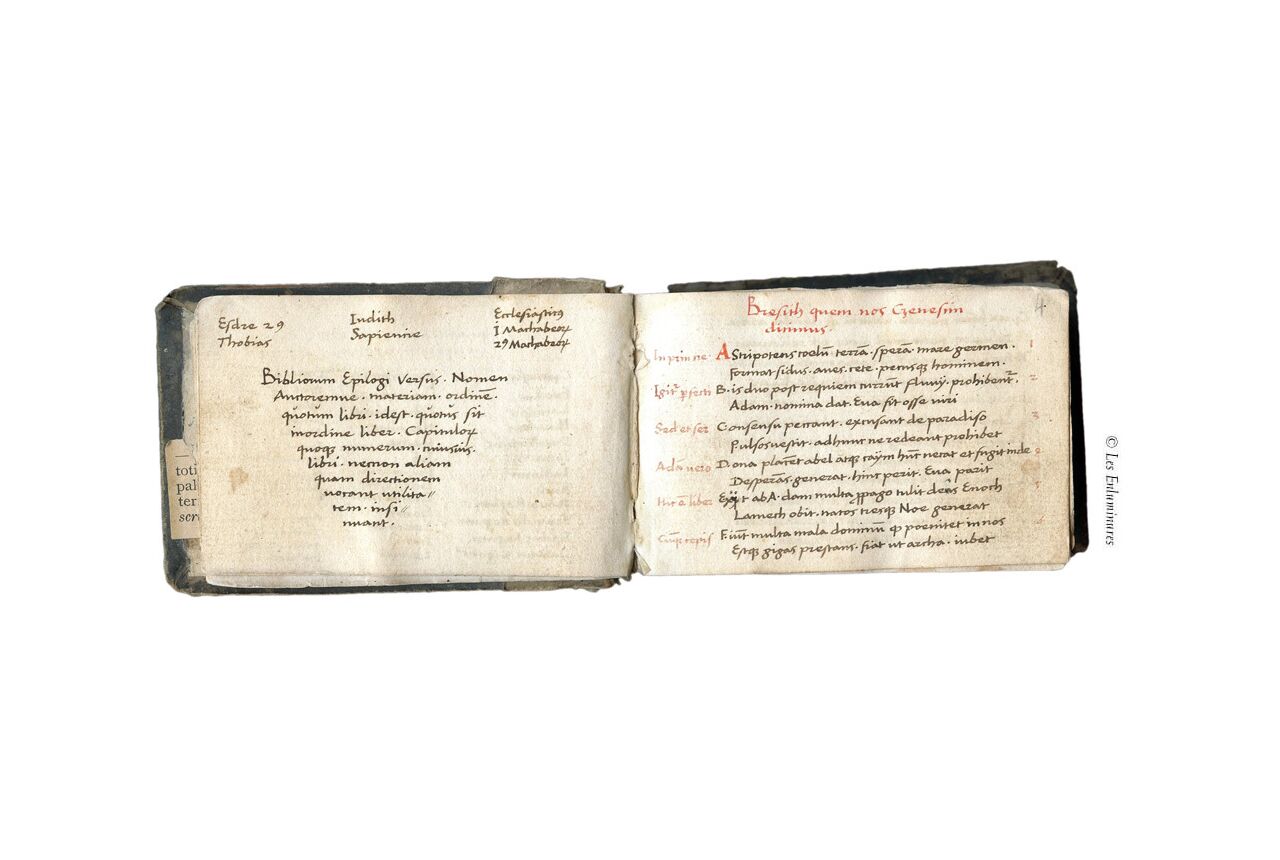 Esdre 29
Thobias
Iudith
Sapientie
Ecclesiasticus
i Machabeoꝝ
29 Machabeoꝝ
Bibliorum Epilogi versus · Nomen
Auctoremue · materiam · ordinē ·
quotum libri · idest · quotus sit
inordine liber · Capituloꝝ
quoqꝫ numerum · cuiusuis ·
libri · necnon aliam
quam directionem
uocant utilita//
tem · insi//
nuant ·
toti
pal
ter
scr
4.
Bresith quem nos Genesim
dicimus ·
In principe · AStripotens coelū terrā · sperā · mare germen · 1
format sidus · aues · cete · pecusqꝫ hominem · 2
Igit᷑ perfecti B · is duo post requiem currunt fluuÿ · prohibent᷑ ·
Adam · nomina dat · Eua fit osse uiri
Sed et ser Consensu peccant · excusant de paradiso 3
Pulsos uestit · adhunc ne redeant prohibet
Ada uero D · ona placēt abel atqꝫ caÿm hūc necat et fugit inde
Desperās · generat · hinc perit · Eua parit
Hic ē liber t ab A · dam multa ꝓpago tulit Enoch 5
Lamech obit · natos tresqꝫ Noe generat
Cūqꝫ cepis F · iūt multa mala dominū qꝫ poenitet in nos 6
Estqꝫ gigas prestans · fiat ut archa · iubet
© Les Enluminures